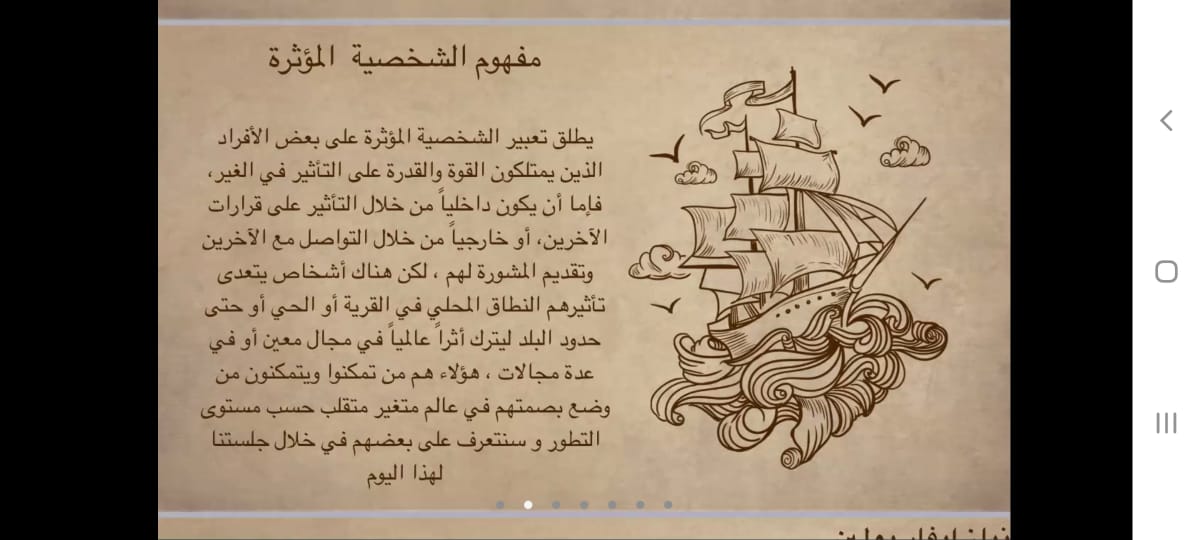 مفهوم الشخصية المؤثرة
يطلق تعبير الشخصية المؤثرة على بعض الأفراد
الذين يمتلكون القوة والقدرة على التأثير في الغير،
فإما أن يكون داخلياً من خلال التأثير على قرارات
الآخرين، أو خارجياً من خلال التواصل مع الآخرين
وتقديم المشورة لهم ، لكن هناك أشخاص يتعدى
تأثيرهم النطاق المحلي في القرية أو الحي أو حتى
حدود البلد ليترك أثراً عالمياً في مجال معين أو في
عدة مجالات ، هؤلاء هم من تمكنوا ويتمكنون من
وضع بصمتهم في عالم متغير متقلب حسب مستوى
التطور و سنتعرف على بعضهم في خلال جلستنا
لهذا اليوم